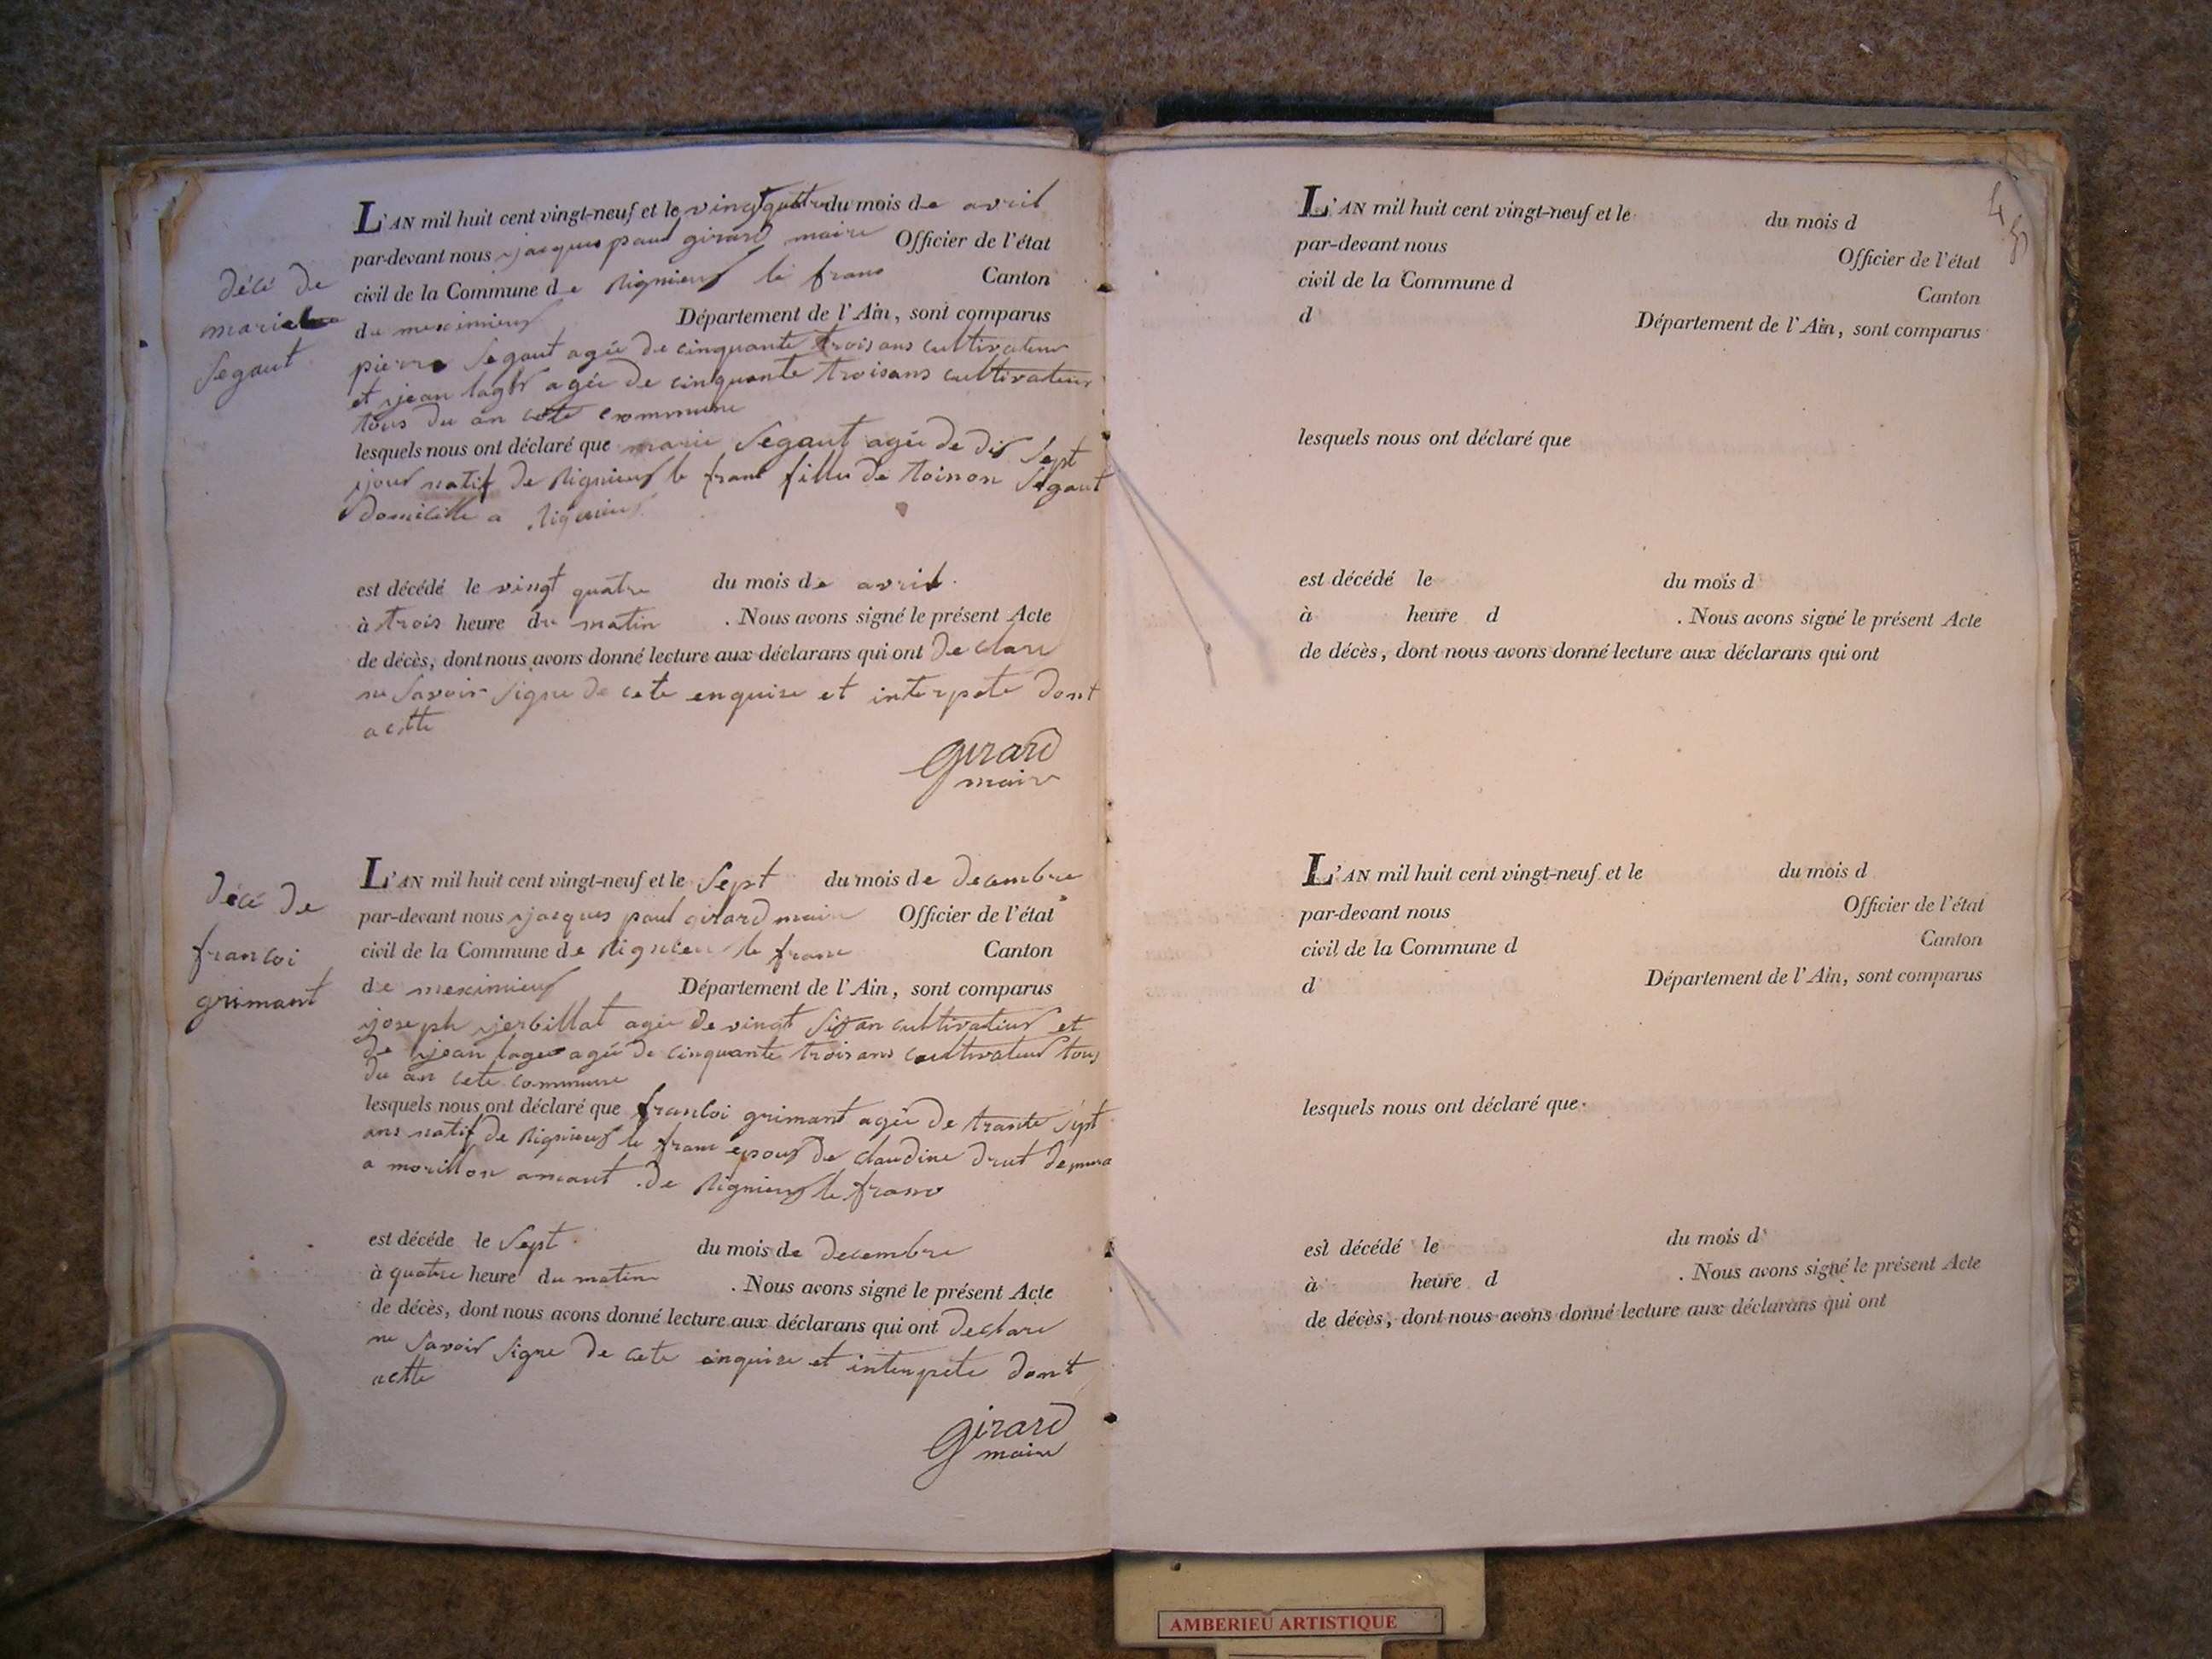 décé de
marie
Segaut
L'AN mil huit cent vingt-neuf et le vingt quatre du mois de avril
par-devant nous jacques paul girard maire Officier de l'état
civil de la Commune de Rignieux le franc Canton
de meximieux Département de l'Ain, sont comparus
pierre Segaut agée de cinquante trois ans cultivateur
et jean agée de cinquante trois ans cultivateur
tous du an cete commune
lesquels nous ont déclaré que marie Segaut agée de dix Sept
jour natif de Rignieux le franc fille de toinon Segaut
domicille a Rignieux
est décédé le vingt quatre du mois de avril.
à trois heure du matin . Nous avons signé le présent Acte
de décès, dont nous avons donné lecture aux déclarans qui ont declare
ne Savoir Signe de cete enquise et interpete dont
actte
girard
maire
décé de
francoi
grimant
L'AN mil huit cent vingt-neuf et le Sept du mois de decembre
par-devant nous jacques paul girard maire Officier de l'état
civil de la Commune de Rignieux le franc Canton
de meximieux Département de l'Ain, sont comparus
joseph jerbillat agée de vingt Six an cultivateur et
de jean agée de cinquante trois ans cultivateur tous
du an cete commune
lesquels nous ont déclaré que francoi grimant agée de trante Sept
ans natif de Rignieux le franc epoux de claudine drut
a morillon de Rignieux le franc
est décéde le Sept du mois de decembre
à quatre heure du matin . Nous avons signé le présent Acte
de décès, dont nous avons donné lecture aux déclarans qui ont declare
ne Savoir Signe de cete enquise et interpete dont
actte
girard
maire
45
L'AN mil huit cent vingt-neuf et le du mois d
par-devant nous Officier de l'état
civil de la Commune d Canton
d Département de l'Ain, sont comparus
lesquels nous ont déclaré que
est décédé le du mois d
à heure d . Nous avons signé le présent Acte
de décès, dont nous avons donné lecture aux déclarans qui ont
L'AN mil huit cent vingt-neuf et le du mois d
par-devant nous Officier de l'état
civil de la Commune d Canton
d Département de l'Ain, sont comparus
lesquels nous ont déclaré que
est décédé le du mois d
à heure d . Nous avons signé le présent Acte
de décès, dont nous avons donné lecture aux déclarans qui ont
AMBERIEU ARTISTIQUE